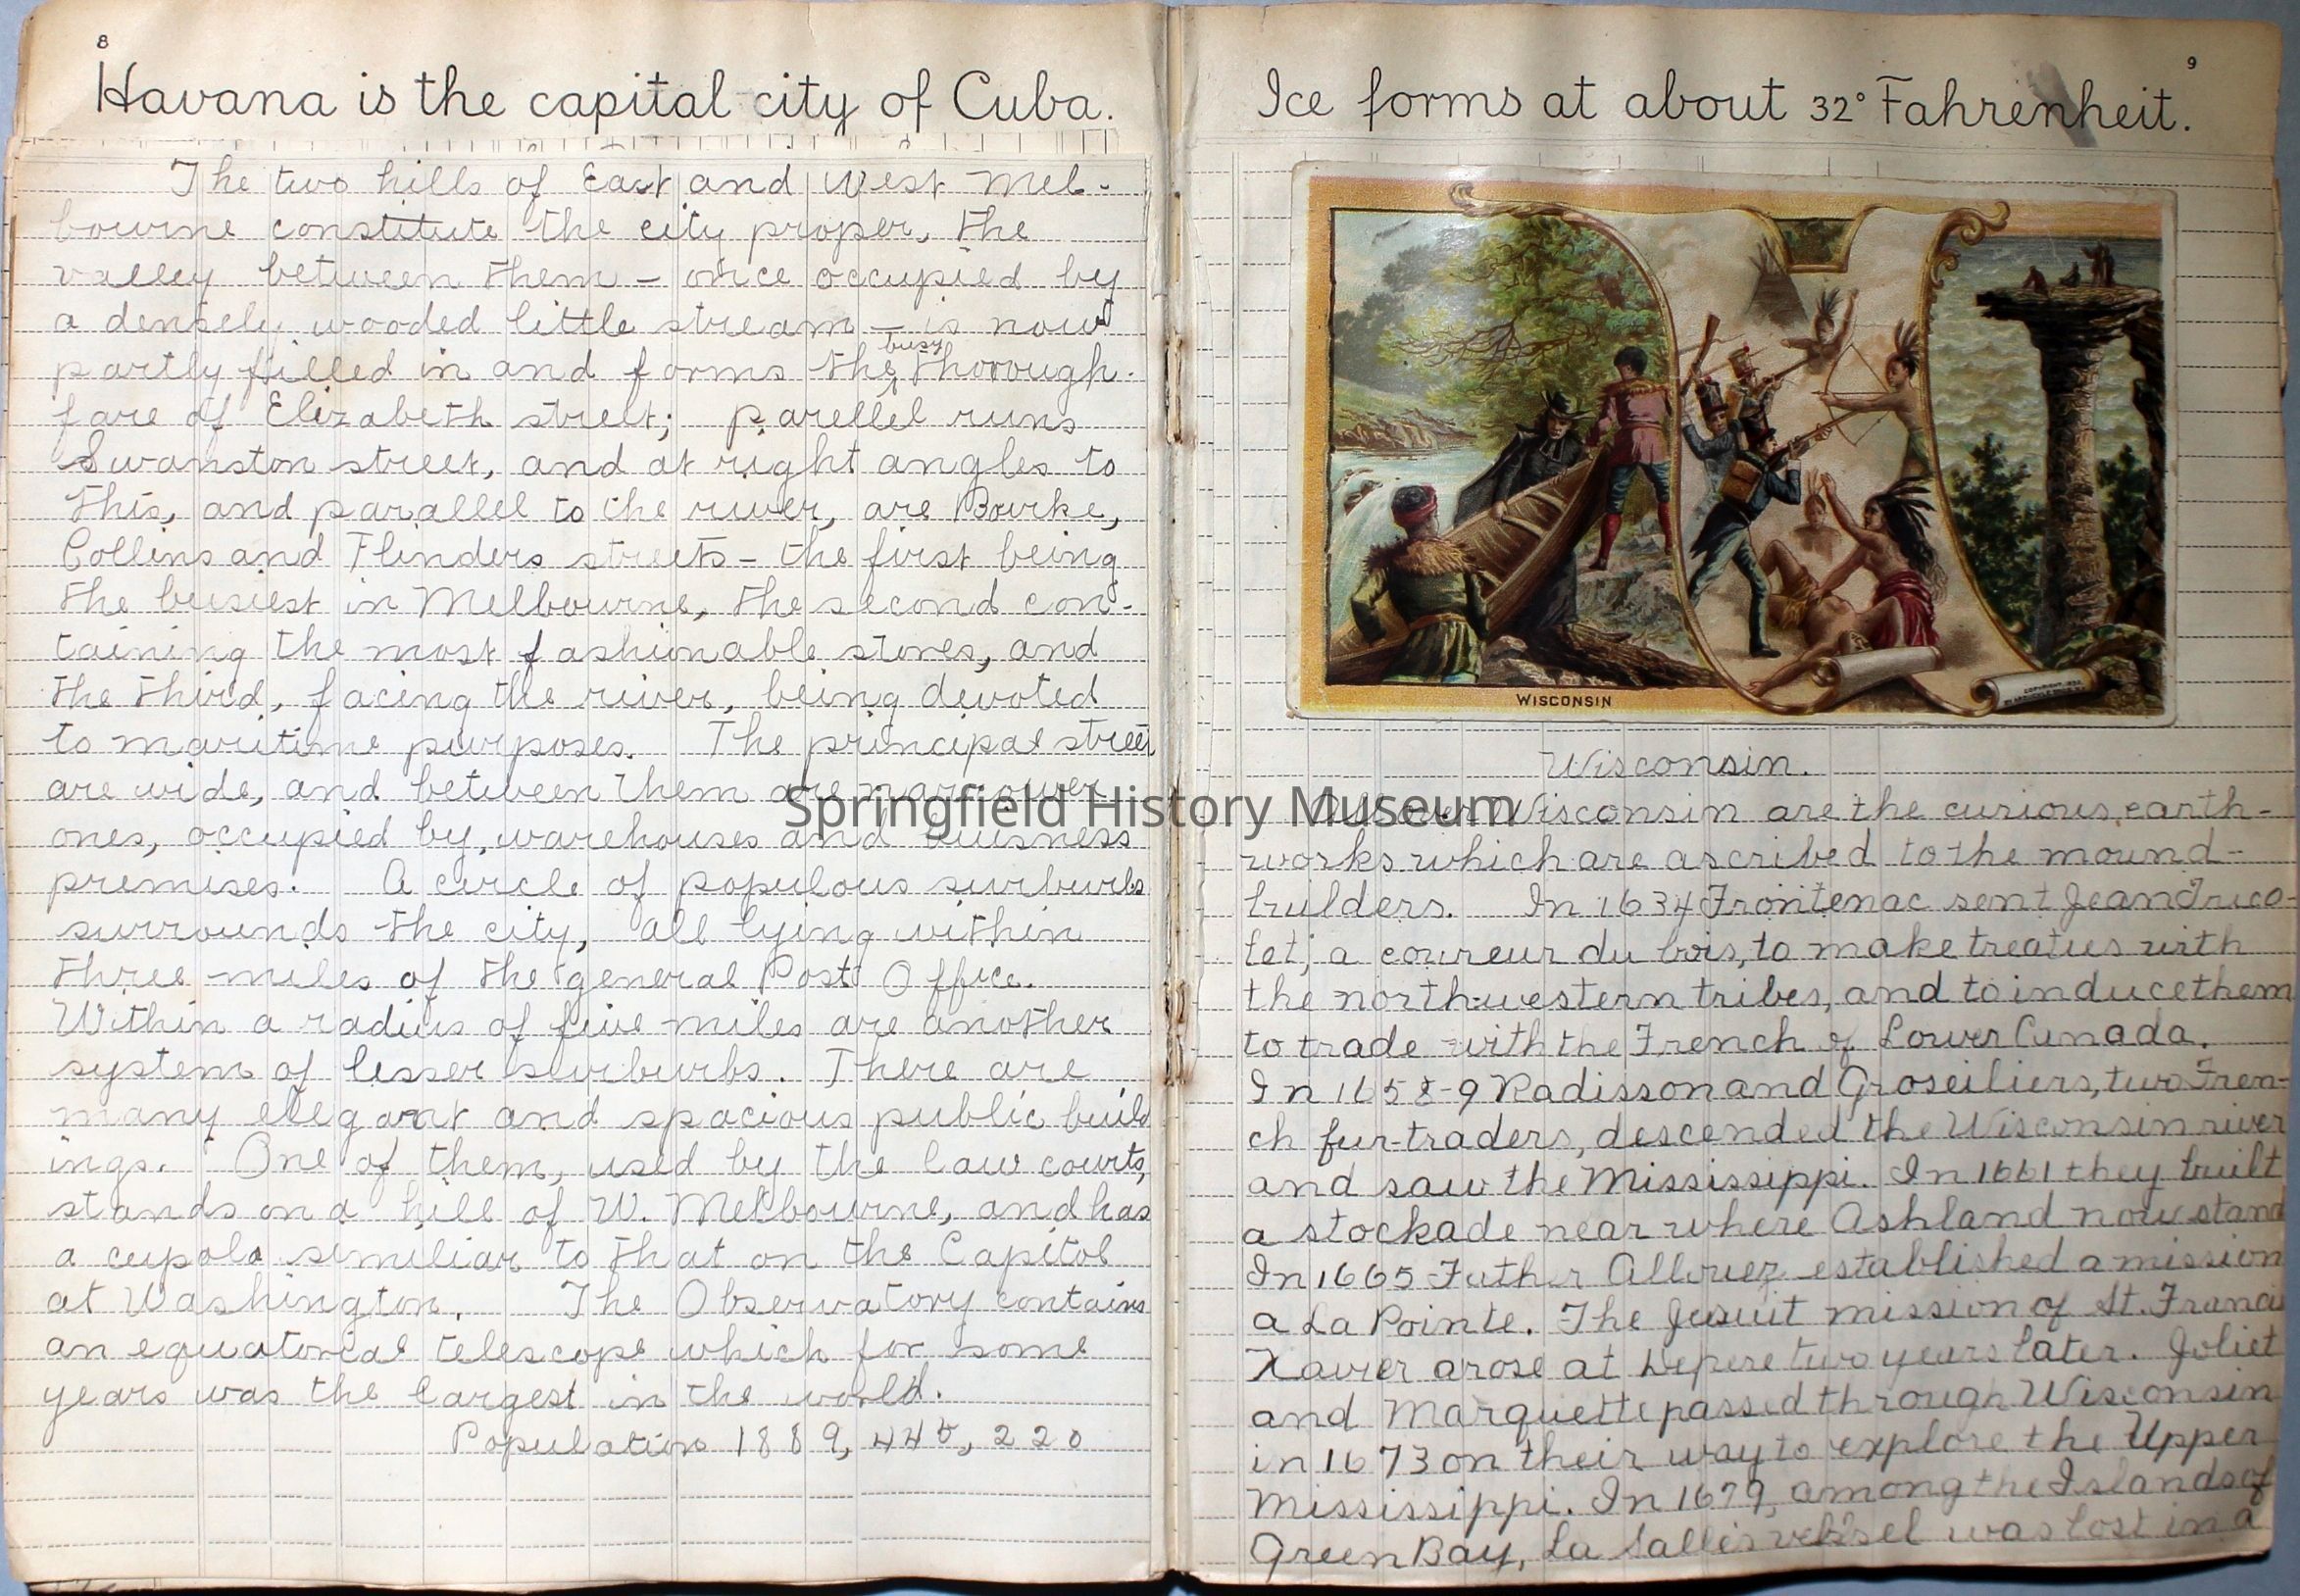 8
Havana is the capital city of Cuba.
The two hills of East and West Mel-
bourne constitute the city proper, the
valley between them – once occupied by
a densely wooded little stream – is now
partly filled in and forms the busy thorough-
fare of Elizabeth street; parellel runs
Swanston street, and at right angles to
this, and parallel to the river, are Bourke,
Collins and Flinders streets – the first being
the busiest in Melbourne, the second con-
taining the most fashionable stores, and
the third, facing the river, being devoted
to maritime purposes. The principal street
are wide, and between them are narrower
ones, occupied by warehouses and buisness
premises. A circle of populous surburbs
surrounds the city, all lying within
three miles of the general Post Office.
Within a radius of five miles are another
system of lesser surburbs. There are
many elegant and spacious public build
ings. One of them, used by the law courts,
stands on a hill of W. Melbourne, and has
a cupola similiar to that on the Capitol
at Washington. The Observatory contains
an equatorial telescope which for some
years was the largest in the world.
Population 1889, 445, 220
9
Ice forms at about 32° Fahrenheit.
WISCONSIN
Wisconsin.
All over Wisconsin are the curious earth-
works which are ascribed to the mound-
builders. In 1634 Frontenac sent Jean Trico-
let, a coureur du bois, to make treaties with
the north-western tribes, and to induce them
to trade with the French of Lower Canada.
In 1658-9 Radisson and Groseiliers, two Fren-
ch fur-traders, descended the Wisconsin river
and saw the Mississippi. In 1661 they built
a stockade near where Ashland now stand
In 1665 Father Allouez established a mission
a La Pointe. The Jesuit mission of St. Francis
Xavier arose at Depere two years later. Joliet
and Marquette passed through Wisconsin
in 1673 on their way to explore the Upper
Mississippi. In 1679, among the Islands of
Green Bay, La Salle's vessel was lost in a
Springfield History Museum